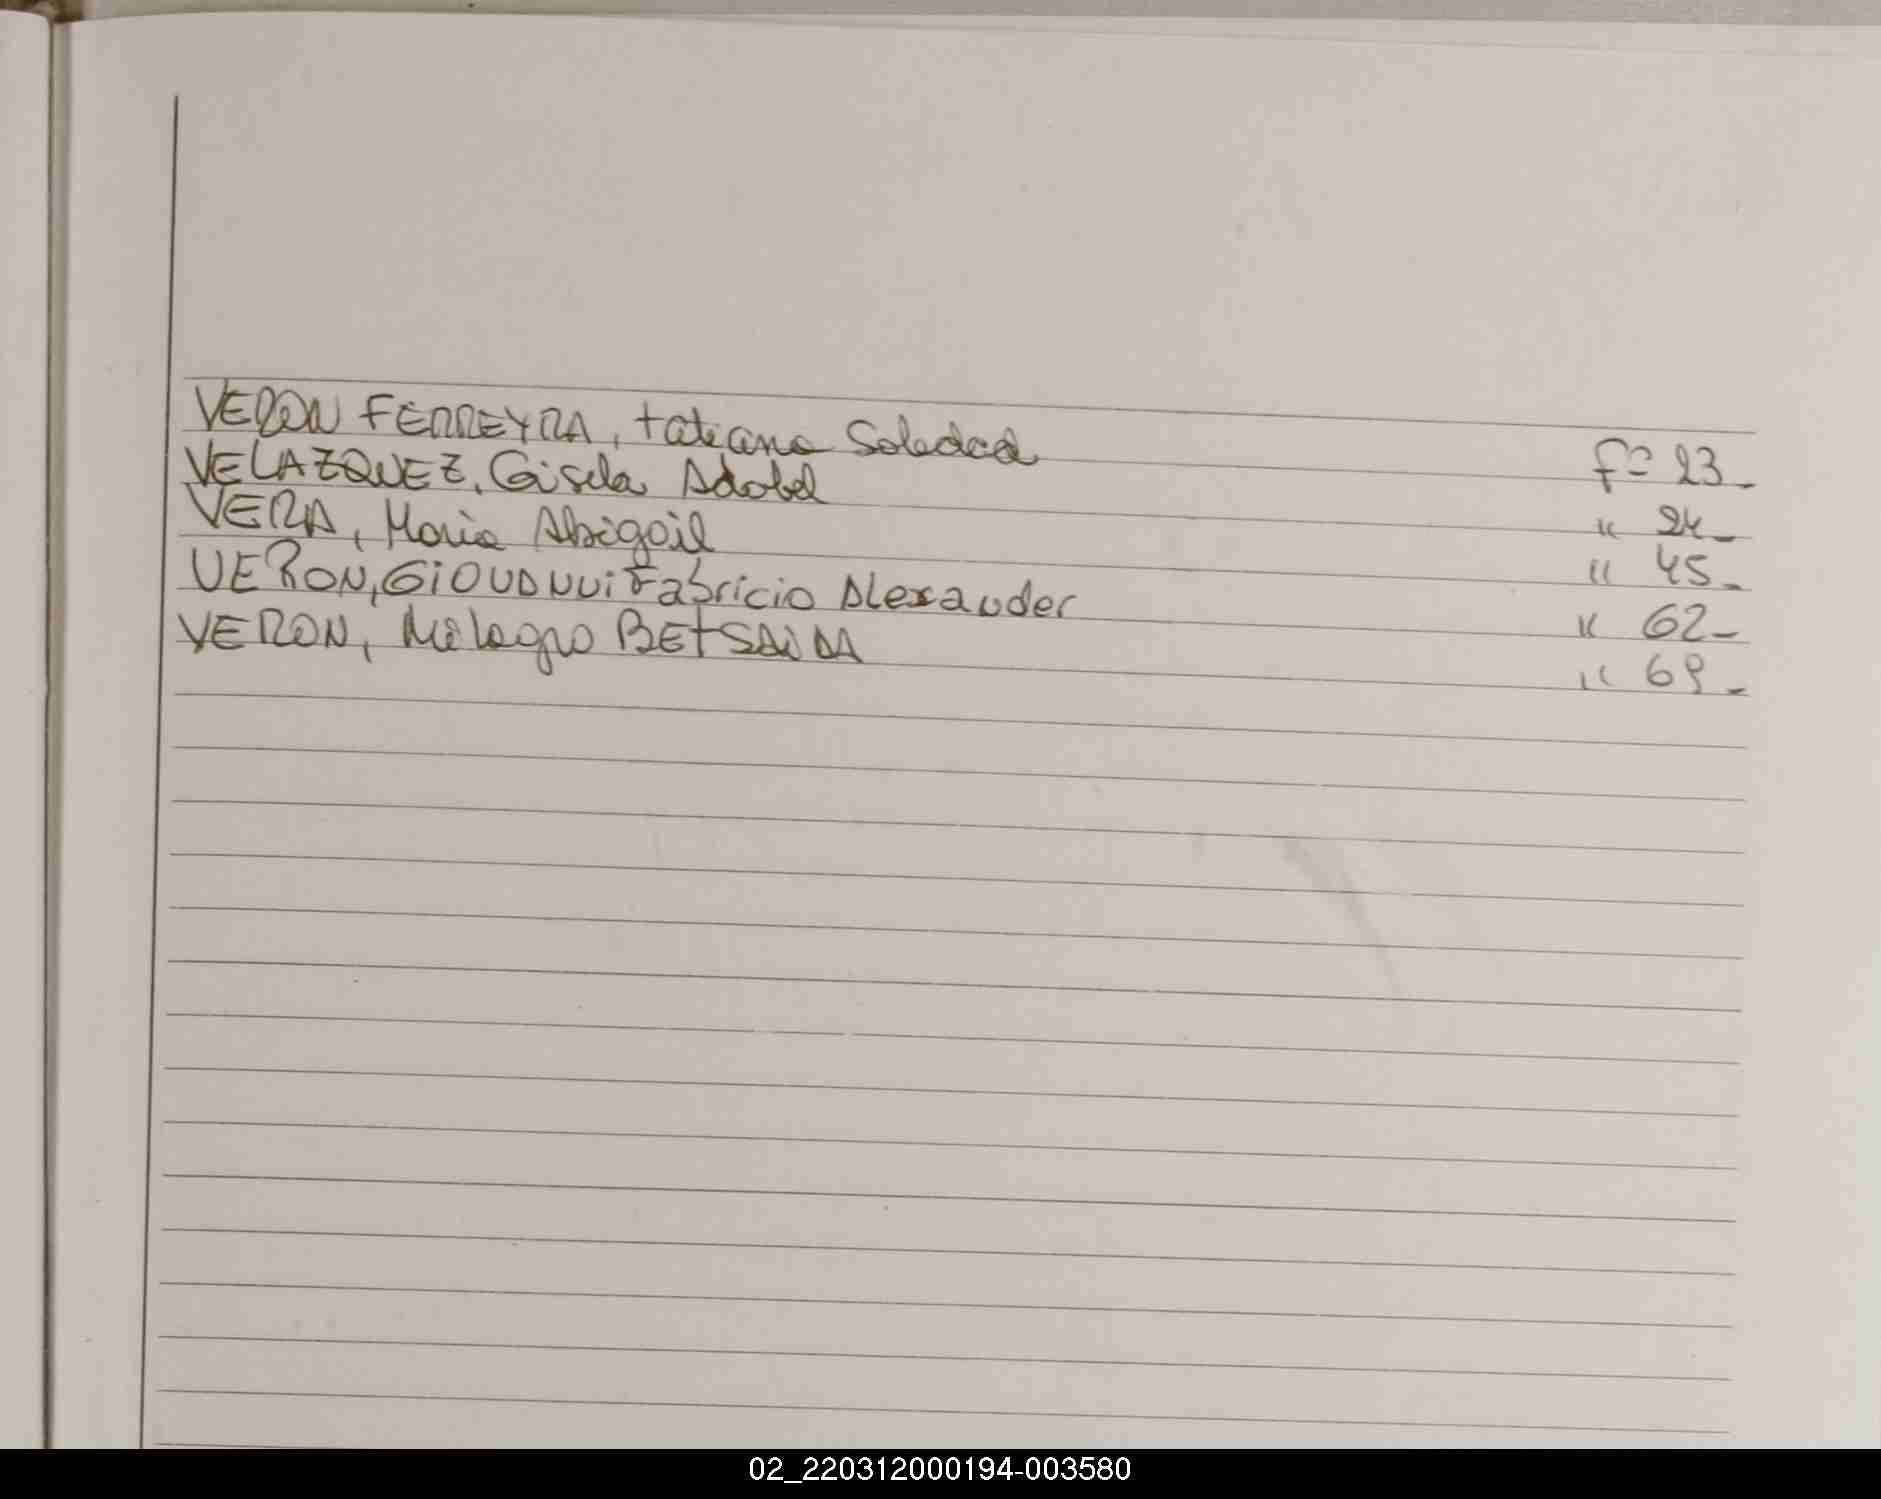 VERON FERREYRA, tatiana Soledad fº 23_
VELAZQUEZ, Gisela Adabel " 24_
VERA, Maria Abigail " 45_
VERON, GiOVANNi Fabricio Alexander " 62_
VERON, Milagro BEtSAiDA " 69_
02_220312000194-003580